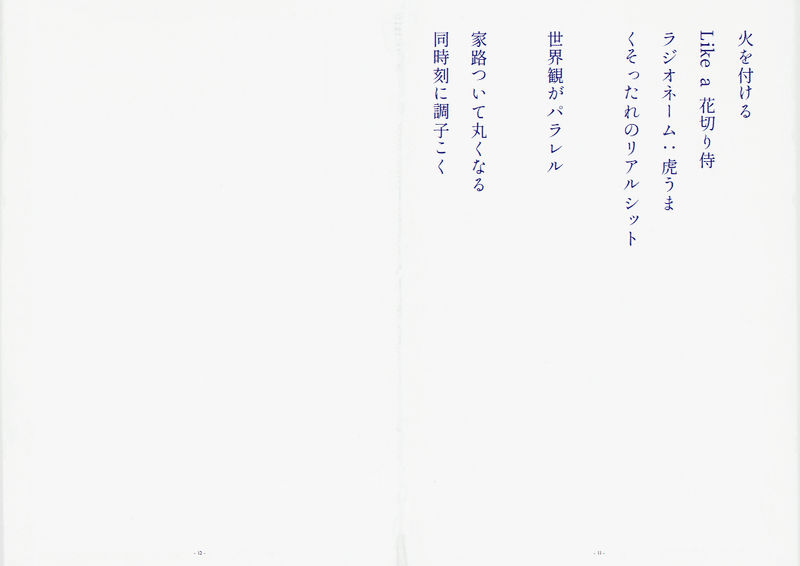 火を付ける
Like a 花切り侍
ラジオネーム：虎うま
くそったれのリアルシット
世界観がパラレル
家路ついて丸くなる
同時刻に調子こく
- 11 -
- 12 -